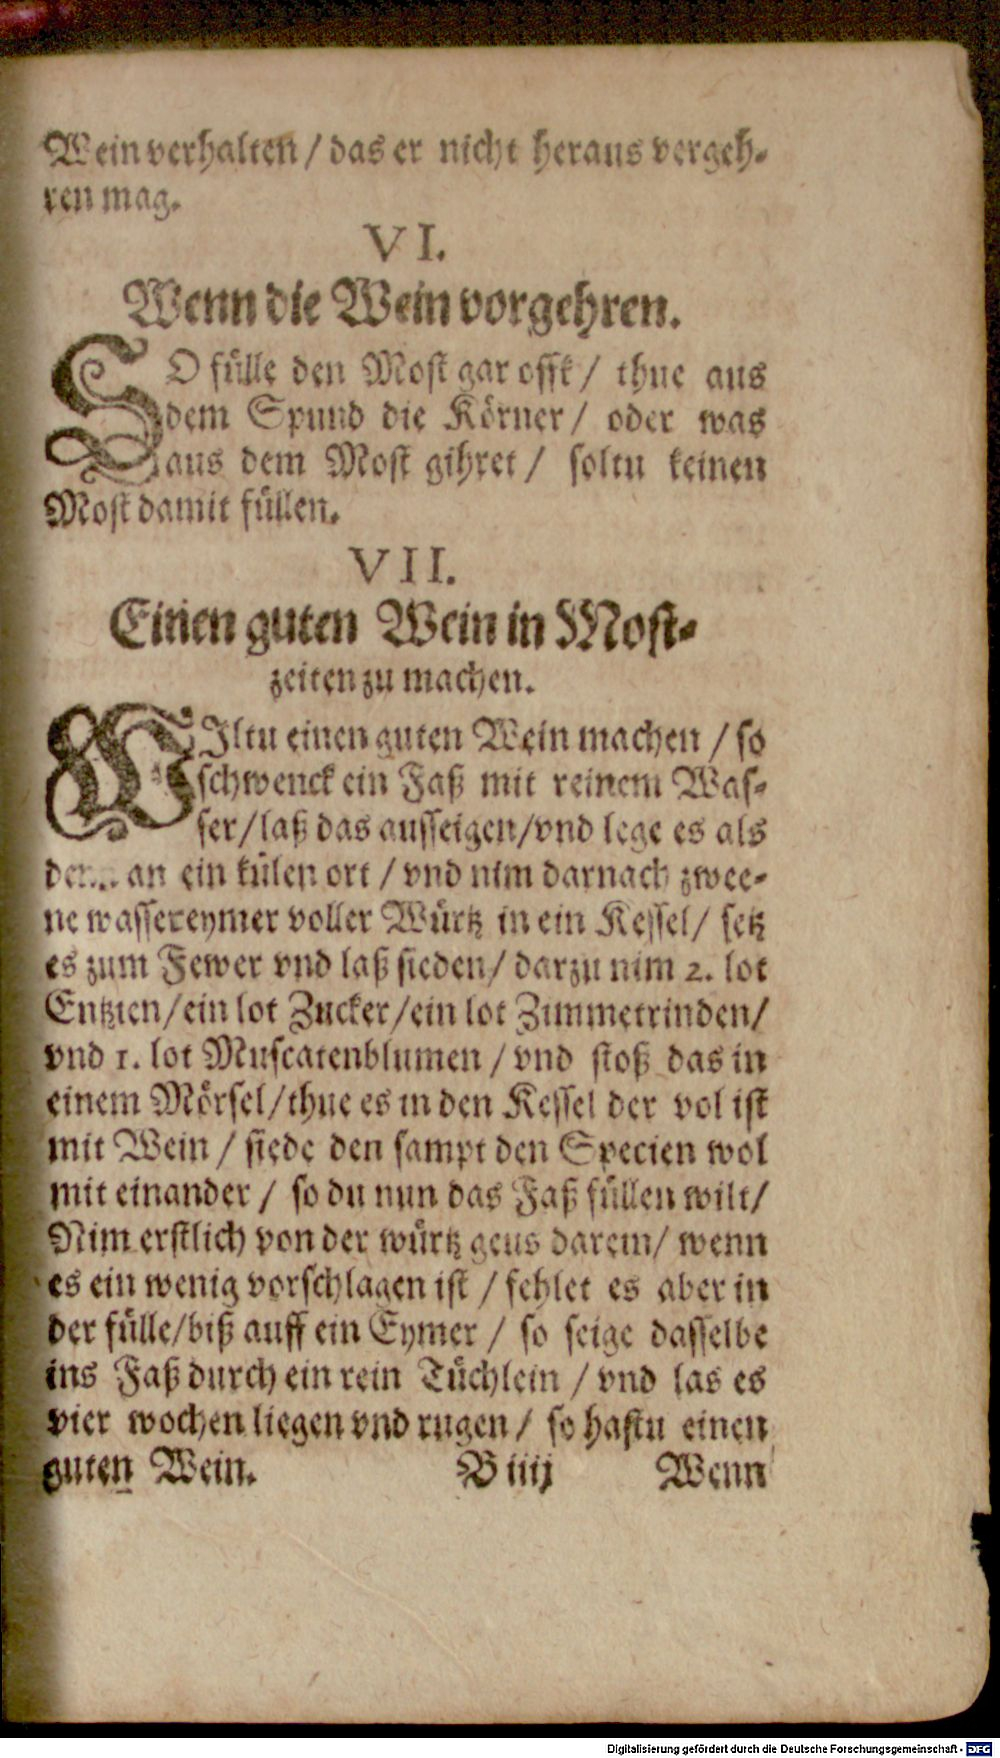 Wein verhalten / das er nicht heraus vergeh-
ren mag.
VI.
Wenn die Wein vorgehren.
SO fülle den Most gar offt / thue aus
dem Spund die Körner / oder was
aus dem Most gihret / soltu keinen
Most damit füllen.
VII.
Einen guten Wein in Most-
zeiten zu machen.
WIltu einen guten Wein machen / so
schwenck ein Faß mit reinem Was-
ser / laß das ausseigen / vnd lege es als
an ein külen ort / vnd nim darnach zwee-
ne wassereymer voller Würtz in ein Kessel / setz
es zum Fewer vnd laß sieden / darzu nim 2. lot
Entzien / ein lot Zucker / ein lot Zimmetrinden /
vnd 1. lot Muscatenblumen / vnd stoß das in
einem Mörsel / thue es in den Kessel der vol ist
mit Wein / siede den sampt den Specien wol
mit einander / so du nun das Faß füllen wilt /
Nim erstlich von der würtz geus darein / wenn
es ein wenig vorschlagen ist / fehlet es aber in
der fülle / biß auff ein Eymer / so seige dasselbe
ins Faß durch ein rein Tüchlein / vnd las es
vier wochen liegen vnd rugen / so hastu einen
guten Wein. B iiij Wenn
Digitalisierung gefördert durch die Deutsche Forschungsgemeinschaft - DFG